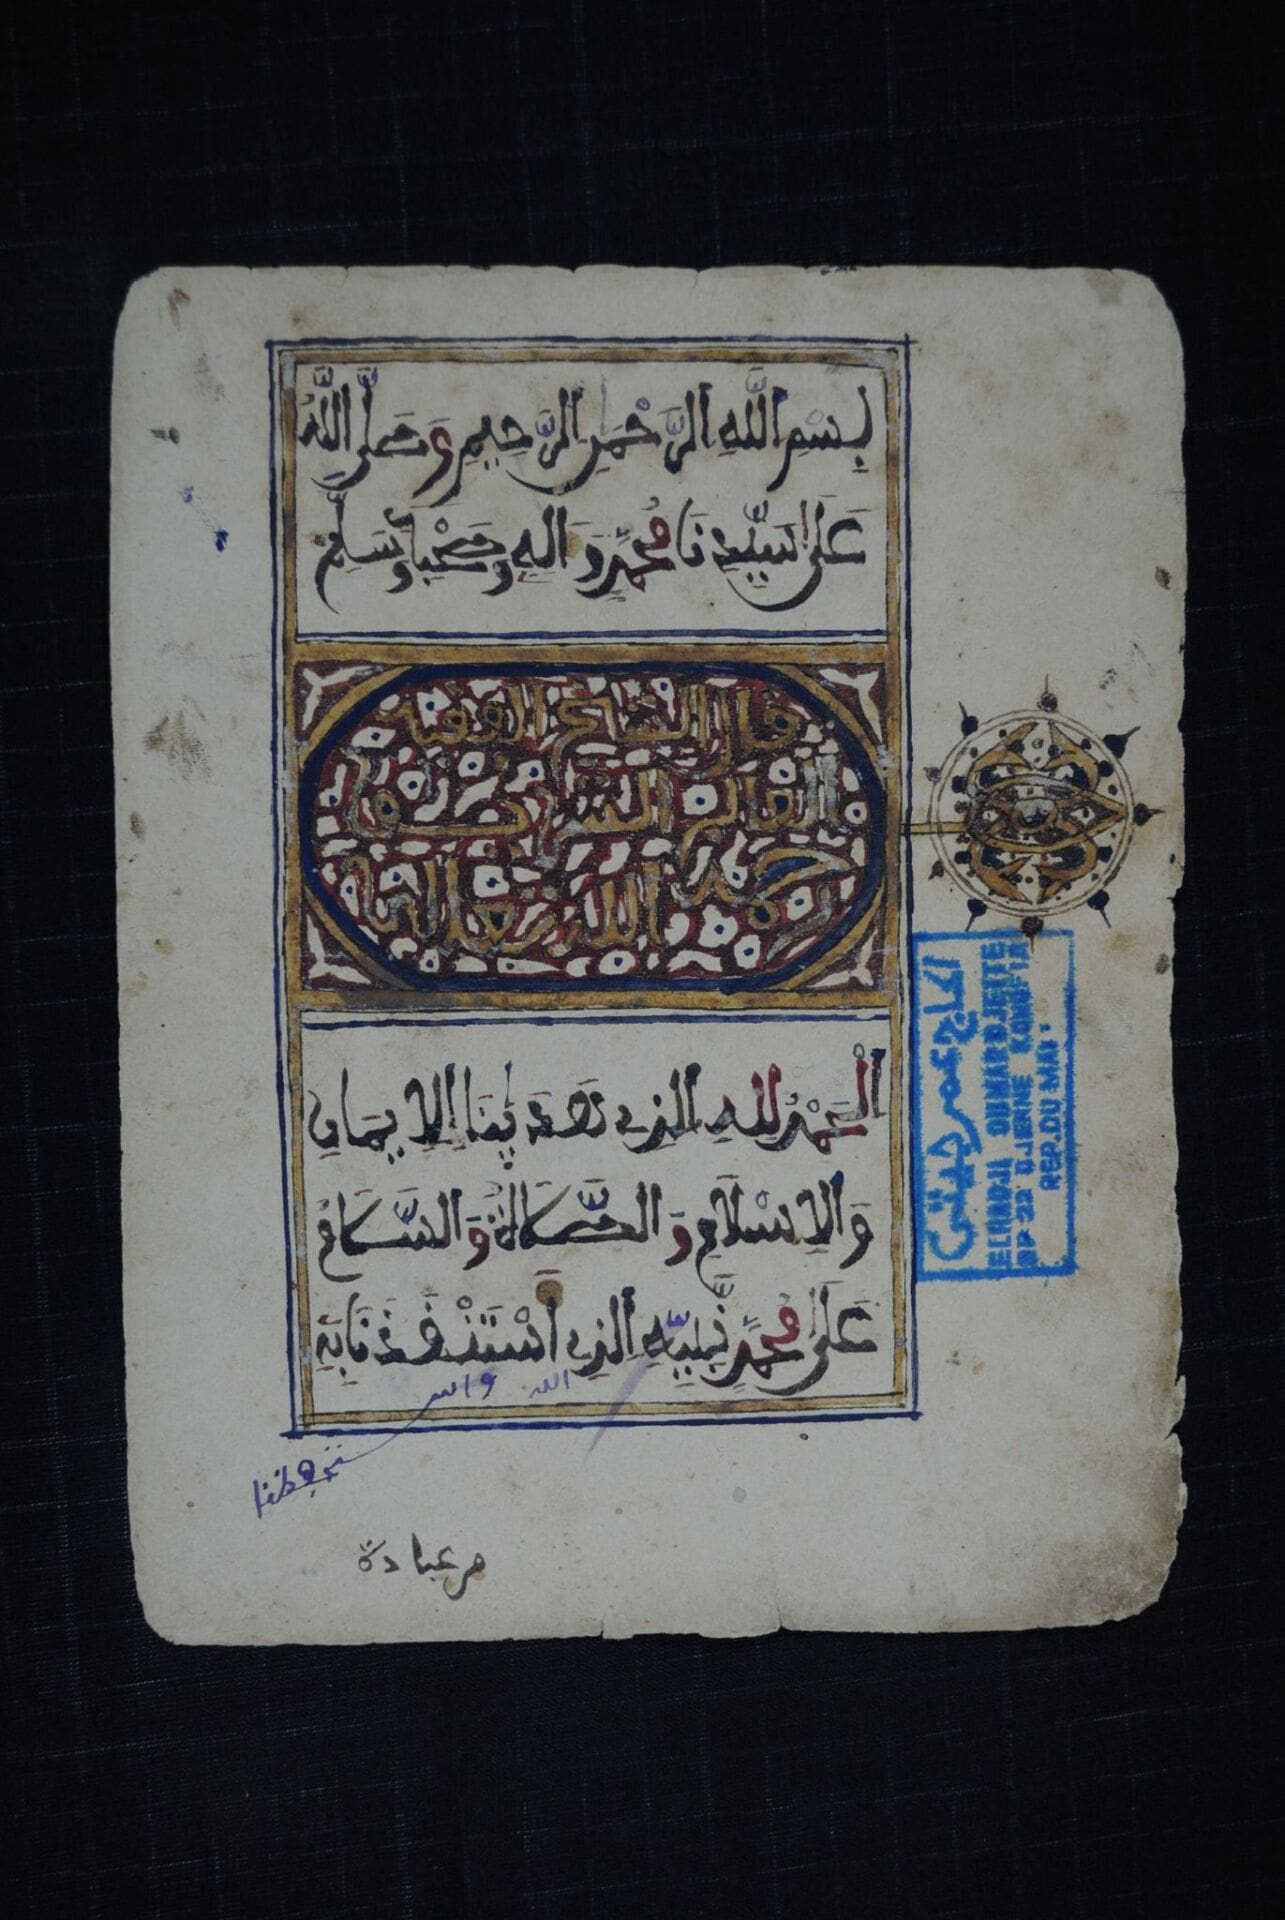 بِسْمِ اللَّهِ الرَّحْمٰنِ الرَّحِيمِ وَصَلَّى اللَّهُ
عَلَى سَيِّدِنَا مُحَمَّدٍ وَآلِهِ وَصَحْبِهِ وَسَلَّمَ
قال الشيخ الفقيه
العالم
رحمه الله تعالى
الْحَمْدُ لِلهِ الذِي هَدَينَا لِلاِيمَانِ
وَالاِسْلَامِ وَالصَّلَاةُ وَالسَّلَامُ
عَلَى مُحَمَّدٍ نَّبِيِّهِ الذِي اسْتَنْقَذَنَا بِهِ
الله واستنقذنا
من عبادة
الحاج عمر جيتي
ELHADJI OUMAR DJEITE
BP 22 DJENNE KONOFIA
REP.DU MALI.